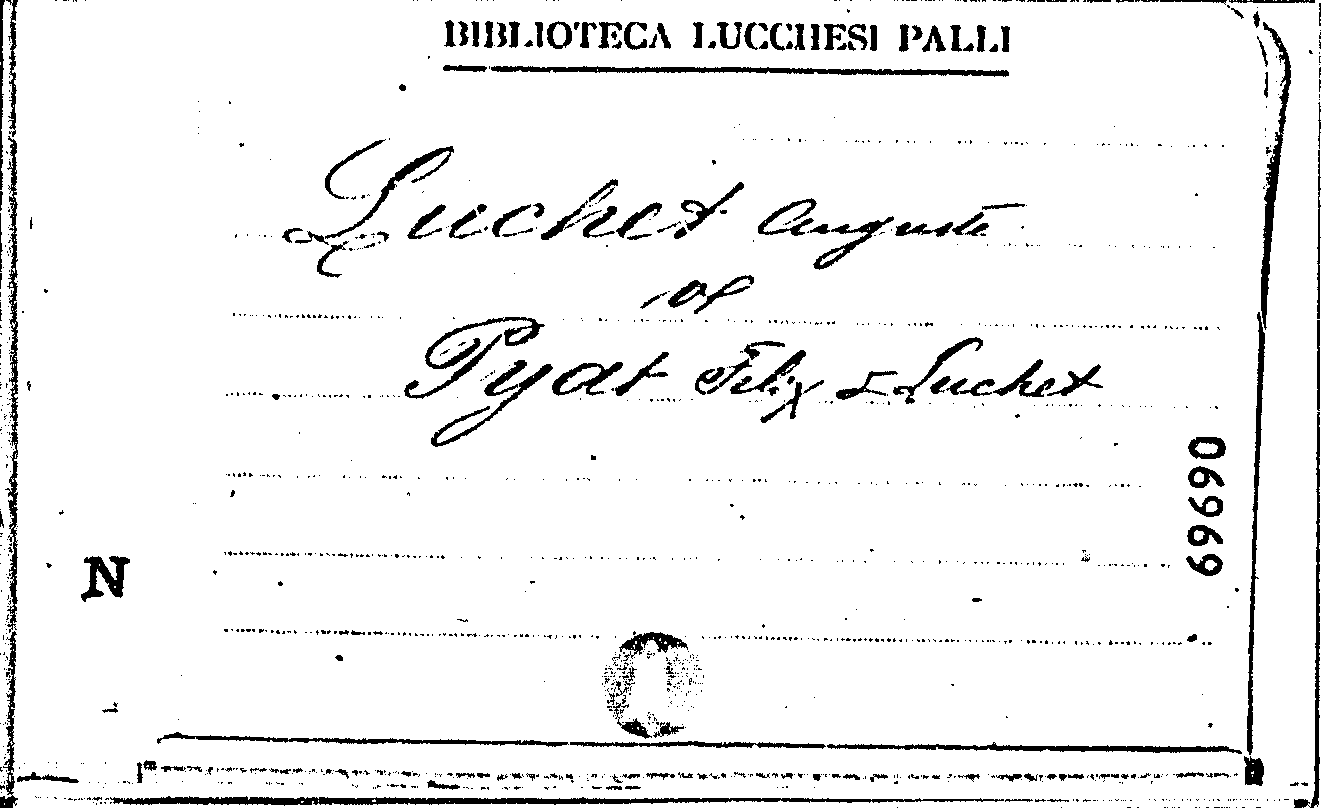 BIBLIOTECA LUCCHESI PALLI
Luchet Auguste
Pyat Felix & Luchet
N